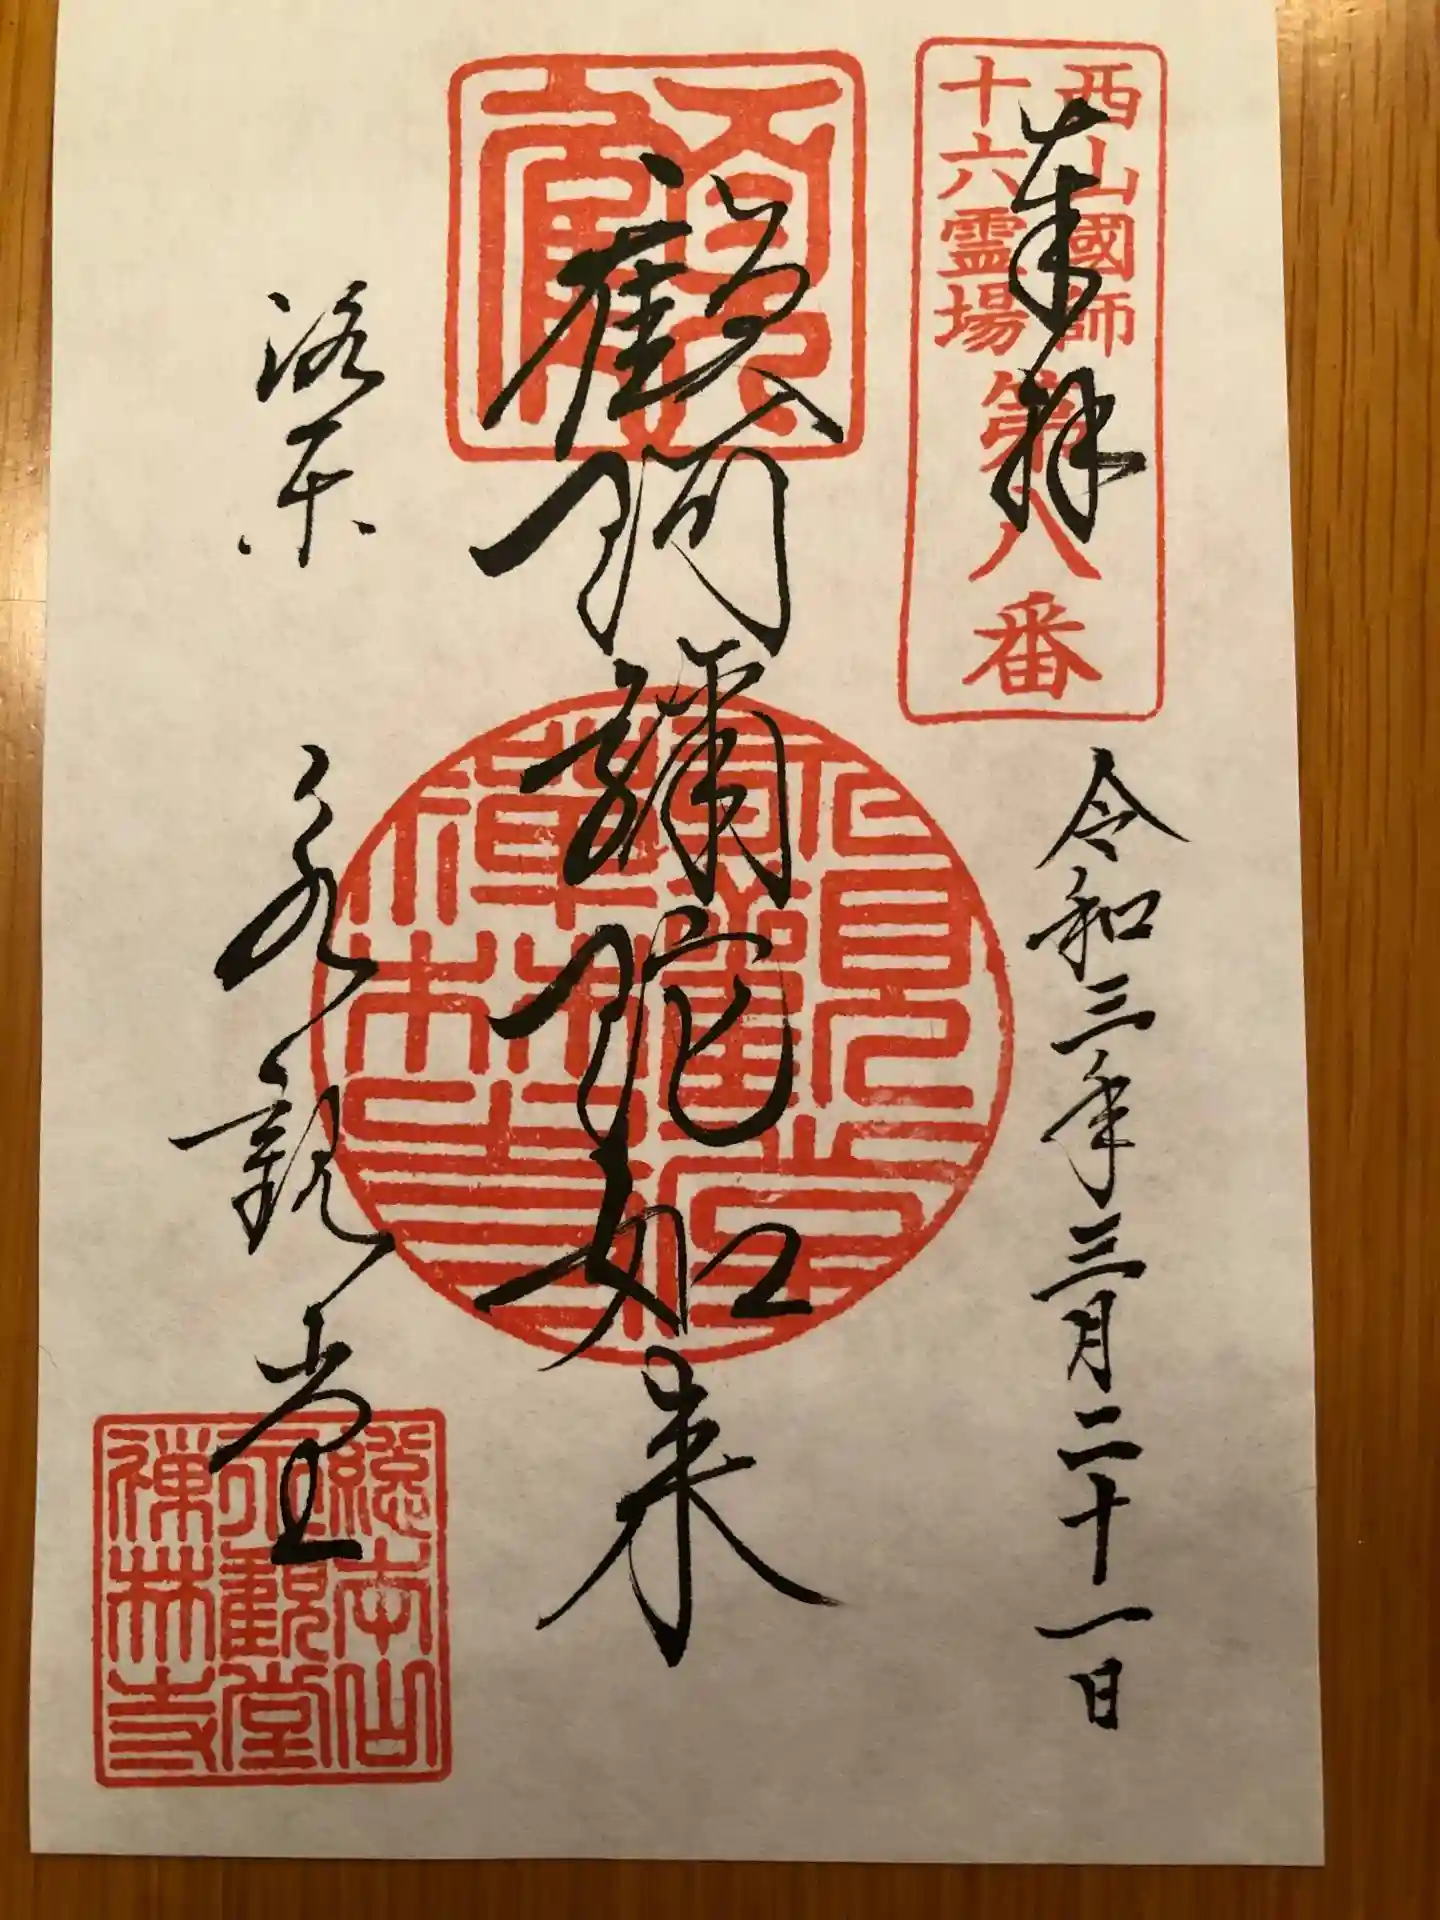 西山國師
十六霊場
第八番
奉拝
令和三年三月二十一日
顧阿彌陀如来
洛東 永観堂
總本山
永觀堂
禅林寺